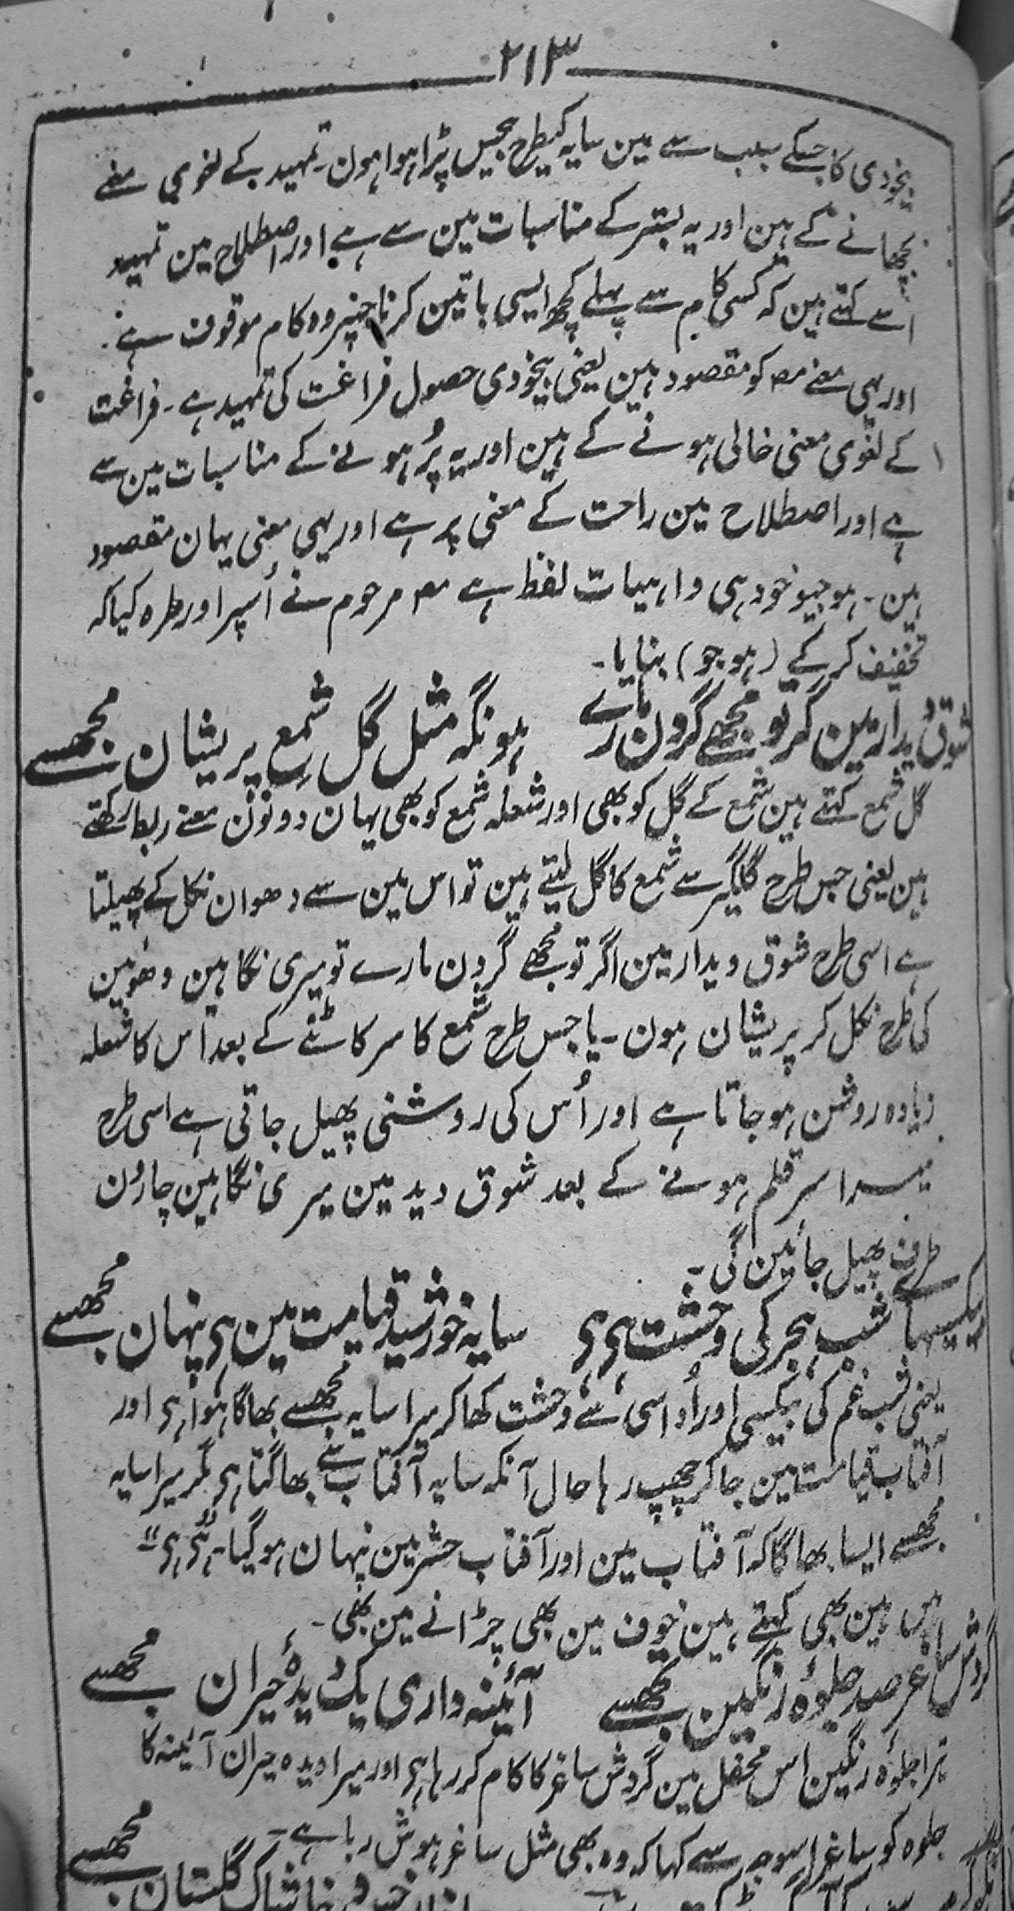 ۲۱۳
بیخودی کا جسکے سبب سے مین سایہ کیطرح مجمین پڑا ہوا ہون۔ تمہید کے لغوی معنے
بچھانے کے ہین اور یہ بستر کے مناسبات مین سے ہے اور اصطلاح مین تمہید
اُسے کہتے ہین کہ کسی کام سے پہلے کچھ ایسی باتین کرنا جنپر وہ کام موقوف ہے۔
اور یہی معنے مصہ کو مقصود ہین یعنی بیخودی حصول فراغت کی تمہید ہے۔ فراغت
کے لغوی معنی خالی ہونے کے ہین اور یہ پُر ہونے کے مناسبات مین سے
ہے اور اصطلاح مین راحت کے معنی پر ہے اور یہی معنی یہان مقصود
ہین۔ ہوجیو خود ہی واہیات لفظ ہے مصہ مرحوم نے اُسپر اور طرہ کیا کہ
تخفیف کر کے (ہوجو) بنایا۔
شوق دیدار مین گر تو مجھے گردن مارے ہو نگہ مثل گل شمع پریشان مجھسے
گل شمع کہتے ہین شمع کے گل کو بھی اور شعلہ شمع کو بھی یہان دونون معنے ربط رکھتے
ہین یعنی جس طرح گلگیر سے شمع کا گل لیتے ہین تو اس مین سے دھوان نکل کے پھیلتا
ہے اسی طرح شوق دیدار مین اگر تو مجھے گردن مارے تو میری نگاہین دھوئین
کی طرح نکل کر پریشان ہون۔ یا جس طرح شمع کا سر کاٹنے کے بعد اُس کا شعلہ
زیادہ روشن ہو جاتا ہے اور اُس کی روشنی پھیل جاتی ہے اسی طرح
میرا سر قلم ہونے کے بعد شوق دید مین میری نگاہین چارون
طرف پھیل جائین گی۔
بیکسیہاے شب ہجر کی وحشت ہی ہی سایہ خورشید قیامت مین ہی پنہان مجھسے
یعنی شب غم کی بیکسی اور اُداسی سے وحشت کھا کر میرا سایہ مجھسے بھاگا ہوا ہی اور
آفتاب قیامت مین جا کر چھپ رہا حال آنکہ سایہ آفتاب سے بھاگتا ہی مگر میرا سایہ
مجھسے ایسا بھاگا کہ آفتاب مین اور آفتاب حشر مین پنہان ہو گیا۔ "ہی ہی"
ہین بھی کہتے ہین خوف مین بھی چڑانے مین بھی۔
گردش ساغر صد جلوۂ رنگین تجھسے آئنہ داری یک دیدۂ حیران مجھسے
ترا جلوہ رنگین اس محفل مین گردش ساغر کا کام کر رہا ہی اور میرا دیدہ حیران آئینہ کا
جلوہ کو ساغر اسوجہ سے کہا کہ وہ بھی مثل ساغر ہوش ربا ہے۔
خاشاک گلستان مجھسے